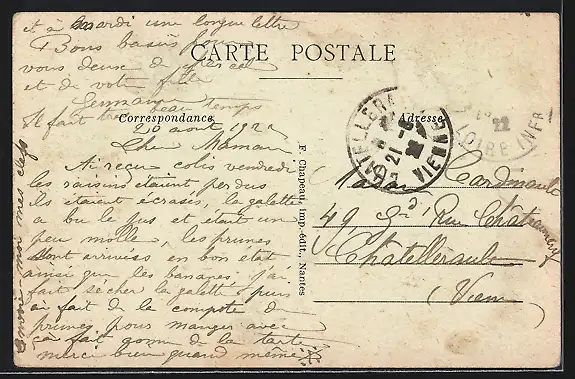 et à mardi une longue lettre
Bons baisers pour
vous deux de
et de votre fille
Germaine
CARTE POSTALE
Correspondance
Adresse
Il fait beau temps
20 août 1922
Chère Maman
Ai reçu colis vendredi
les raisins étaient perdus
ils étaient écrasés, la galette
a bu le jus et était un
peu molle, les prunes
sont arrivées en bon état
ainsi que les bananes. j'ai
fait sécher la galette puis
ai fait de la compote de
prunes, pour manger avec
ça fait comme de la tarte
merci bien quand même
Envoie-moi mes clefs
F. Chapeau, Imp.-édit., Nantes
CHATELLERA
21 -8
22
VIENNE
22
LOIRE INFR
Madame Cardinault
49 Gde Rue Châteauneuf
Châtellerault
Vienne